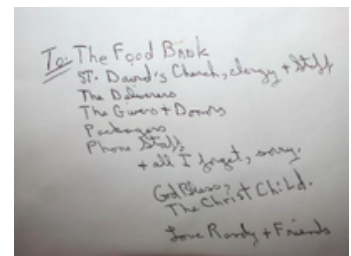 To: The Food Bank
ST. David's Church, clergy + Staff
The Deliverers
The Givers + Donors
Packagers
Phone Staff,
+ all I forget, sorry.
God Bless,
The Christ Child.
Love Randy + Friends